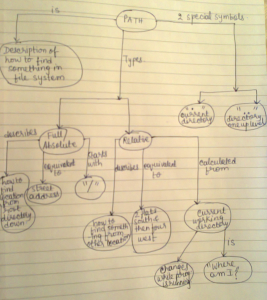 is
PATH
2 special symbols
Description of
how to find
something in
file system
Types
"."
current
directory
".."
directory
one up level
describes
Full
Absolute
Relative
equivalent
to
starts
with
describes
equivalent
to
calculated
from
how to
find
location
from
root
directory
down
street
address
"/"
how to
find someth
ing from
other location
2 lakes
south &
then four
west
current
working
directory
is
changes
while prog
is running
"Where
am I?"